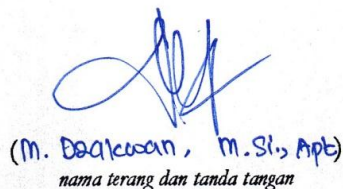 (M. Dzakwan, M.Si., Apt)
nama terang dan tanda tangan